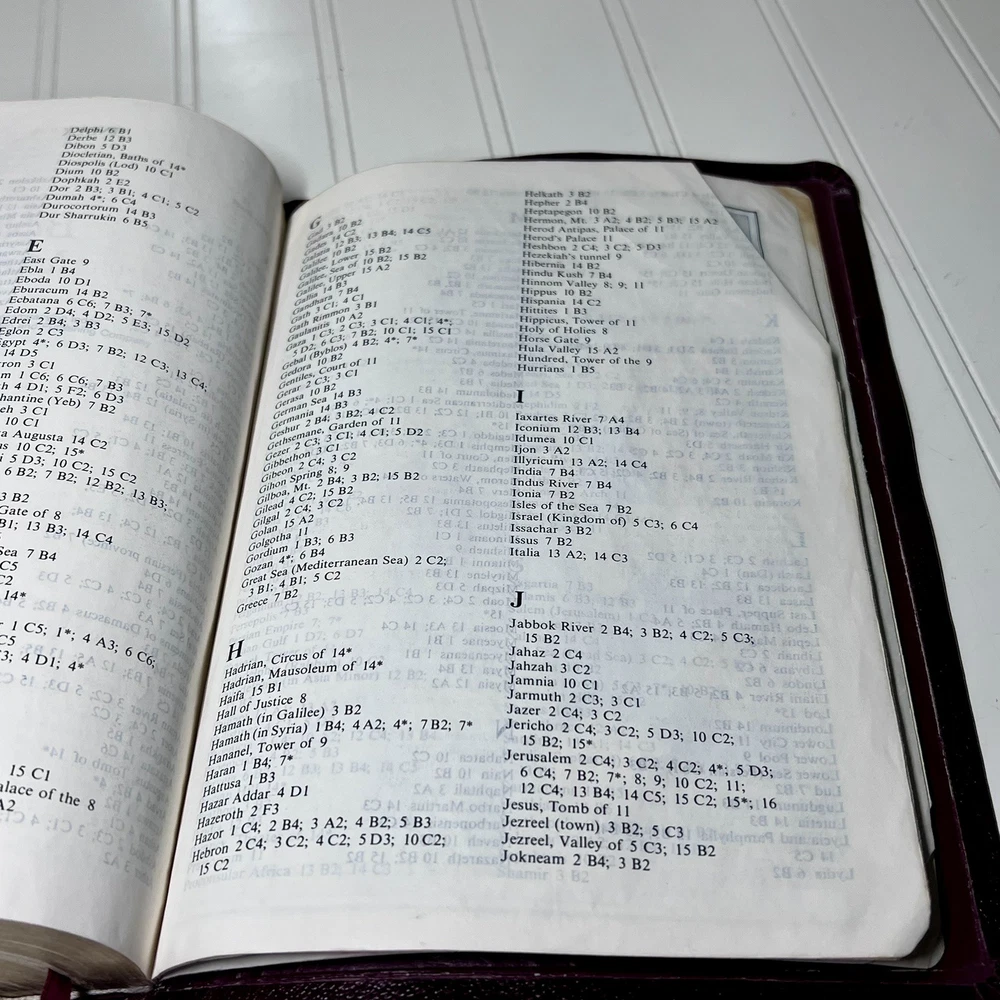 Delphi 6 B1
Derbe 12 B3
Dibon 5 D3
Diocletian, Baths of 14*
Diospolis (Lod) 10 C1
Dium 10 B2
Dophkah 2 E2
Dor 2 B3; 3 B1; 4 C1; 5 C2
Dumah 4*; 6 C4
Durocortorum 14 B3
Dur Sharrukin 6 B5
E
East Gate 9
Ebla 1 B4
Eboda 10 D1
Eburacum 14 B2
Ecbatana 6 C6; 7 B3; 7*
Edom 2 D4; 4 D2; 5 E3; 15 D2
Edrei 2 B4; 3 B3
Eglon 2 C3
Egypt 4*; 6 D3; 7 B2; 12 C3; 13 C4;
14 D5
3 C1
1 C6; 6 C6; 7 B3
4 D1; 5 F2; 6 D3
(Yeb) 7 B2
3 C1
10 C1
Augusta 14 C2
10 C2; 15*
5 D3; 10 C2; 15 C2
6 B2; 7 B2; 12 B2; 13 B3;
3 B2
Gate of 8
B1; 13 B3; 14 C4
Sea 7 B4
C5
C2
14*
1 C5; 1*; 4 A3; 6 C6;
C5
4 D1; 4*
15 C1
Palace of the 8
A2
G
Gad 3 B2
Gadara 10 B2
Gades 14 C2
Galatia 12 B3; 13 B4; 14 C5
Galilee 10 B2
Galilee, Lower 15 B2
Galilee, Sea of 10 B2; 15 B2
Galilee, Upper 15 A2
Gallia 14 B3
Gandhara 7 B4
Gath 3 C1; 4 C1
Gath Rimmon 3 B1
Gaulanitis 10 A2
Gaza 1 C3; 2 C3; 3 C1; 4 C1; 4*;
5 D2; 6 C3; 7 B2; 10 C1; 15 C1
Gebal (Byblos) 4 B2; 4*; 7*
Gedora 10 B2
Gentiles, Court of 11
Gerar 2 C3; 3 C1
Gerasa 10 B2
German Sea 14 B3
Germania 14 B3
Geshur 2 B4; 3 B2; 4 C2
Gethsemane, Garden of 11
Gezer 2 C3; 3 C1; 4 C1; 5 D2
Gibbethon 3 C1
Gibeon 2 C4; 3 C2
Gihon Spring 8; 9
Gilboa, Mt. 2 B4; 3 B2; 15 B2
Gilead 4 C2; 15 B2
Gilgal 2 C4; 3 C2
Golan 15 A2
Golgotha 11
Gordium 1 B3; 6 B3
Gozan 4*; 6 B4
Great Sea (Mediterranean Sea) 2 C2;
3 B1; 4 B1; 5 C2
Greece 7 B2
H
Hadrian, Circus of 14*
Hadrian, Mausoleum of 14*
Haifa 15 B1
Hall of Justice 8
Hamath (in Galilee) 3 B2
Hamath (in Syria) 1 B4; 4 A2; 4*; 7 B2; 7*
Hananel, Tower of 9
Haran 1 B4; 7*
Hattusa 1 B3
Hazar Addar 4 D1
Hazeroth 2 F3
Hazor 1 C4; 2 B4; 3 A2; 4 B2; 5 B3
Hebron 2 C4; 3 C2; 4 C2; 5 D3; 10 C2;
15 C2
Helkath 3 B2
Hepher 2 B4
Heptapegon 10 B2
Hermon, Mt. 3 A2; 4 B2; 5 B3; 15 A2
Herod Antipas, Palace of 11
Herod's Palace 11
Heshbon 2 C4; 3 C2; 5 D3
Hezekiah's tunnel 9
Hibernia 14 B2
Hindu Kush 7 B4
Hinnom Valley 8; 9; 11
Hippus 10 B2
Hispania 14 C2
Hittites 1 B3
Hippicus, Tower of 11
Holy of Holies 8
Horse Gate 9
Hula Valley 15 A2
Hundred, Tower of the 9
Hurrians 1 B5
I
Iaxartes River 7 A4
Iconium 12 B3; 13 B4
Idumea 10 C1
Ijon 3 A2
Illyricum 13 A2; 14 C4
India 7 B4
Indus River 7 B4
Ionia 7 B2
Isles of the Sea 7 B2
Israel (Kingdom of) 5 C3; 6 C4
Issachar 3 B2
Issus 7 B2
Italia 13 A2; 14 C3
J
Jabbok River 2 B4; 3 B2; 4 C2; 5 C3;
15 B2
Jahaz 2 C4
Jahzah 3 C2
Jamnia 10 C1
Jarmuth 2 C3; 3 C1
Jazer 2 C4; 3 C2
Jericho 2 C4; 3 C2; 5 D3; 10 C2;
15 B2; 15*
Jerusalem 2 C4; 3 C2; 4 C2; 4*; 5 D3;
6 C4; 7 B2; 7*; 8; 9; 10 C2; 11;
12 C4; 13 B4; 14 C5; 15 C2; 15*; 16
Jesus, Tomb of 11
Jezreel (town) 3 B2; 5 C3
Jezreel, Valley of 5 C3; 15 B2
Jokneam 2 B4; 3 B2